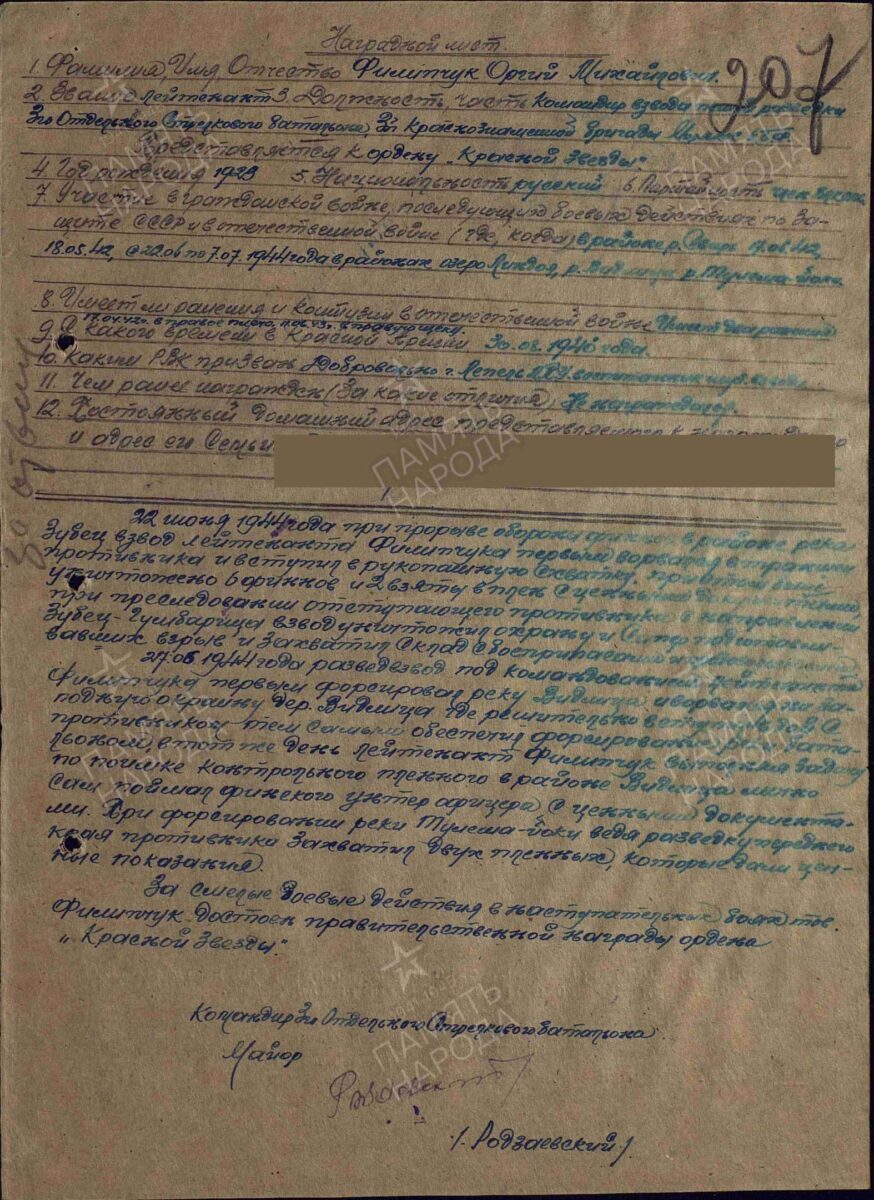 Наградной лист.
207
1. Фамилия, Имя, Отчество Филипчук Оргий Михайлович.
2. Звание лейтенант 3. Должность, часть Командир взвода разведки
3го Отдельного Стрелкового батальона 3й Краснознаменной бригады
Представляется к ордену „Красной Звезды"
4. Год рождения 5. Национальность русский 6. Партийность член
7. Участие в гражданской войне, последующих боевых действиях по за-
щите СССР и в отечественной войне (где, когда) в районе р. Свирь
18.05.42, с 22.06 по 7.07.1944 года в районах озеро р. Видлица р. Тулема-Йоки
8. Имеет ли ранения и контузии в отечественной войне Имеет два ранения
в правое плечо, в правую щеку.
9. С какого времени в Красной Армии 30.08.1940 года.
10. Каким РВК призван Добровольно г. Лепель воспитанник
11. Чем ранее награжден (за какие отличия) Не награжден.
12. Постоянный домашний адрес представляемого к награждению
и адрес его Семьи
22 июня 1944 года при прорыве обороны финнов в районе река
Зубец взвод лейтенанта Филипчука первым ворвался в траншеи
противника и вступил в рукопашную схватку, при этом было
уничтожено 6 финнов и 2 взяты в плен с ценными документами,
при преследовании отступающего противника в направлении
Зубец-Гумбарица взвод уничтожил охрану и
вавших взрыв и захватил склад с боеприпасами
27.06 1944 года разведвзвод под командованием лейтенанта
Филипчука первым форсировал реку Видлица, ворвался на за-
падную окраину дер. Видлица где решительно вступил в бой с
противником тем самым обеспечил форсирование реки бата-
льоном, в тот же день лейтенант Филипчук выполняя задачу
по поимке контрольного пленного в районе Видлица лично
сам поймал финского унтер афицера с ценными документа-
ми. При форсировании реки Тулема-Йоки ведя разведку переднего
края противника захватил двух пленных, которые дали цен-
ные показания.
За смелые боевые действия в наступательных боях тов.
Филипчук достоен правительственной награды ордена
„Красной Звезды".
Командир 3го Отдельного Стрелкового батальона
Майор
/. Родзаевский /
ПАМЯТЬ
НАРОДА